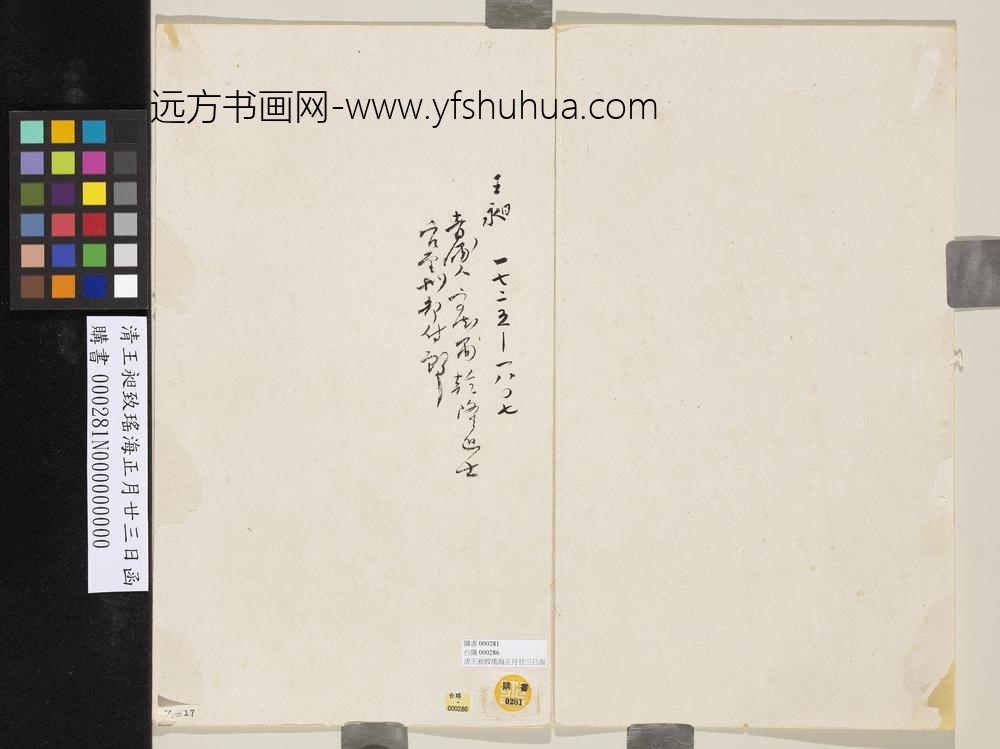 17
远方书画网-www.yfshuhua.com
王昶 一七二五—一八〇七
青浦人字德甫乾隆進士
官至刑部侍郎
清王昶致瑤海正月廿三日函
購書 000281N000000000
購書 000281
台購 000286
清王昶致瑤海正月廿三日函
台購
000286
購書
0281